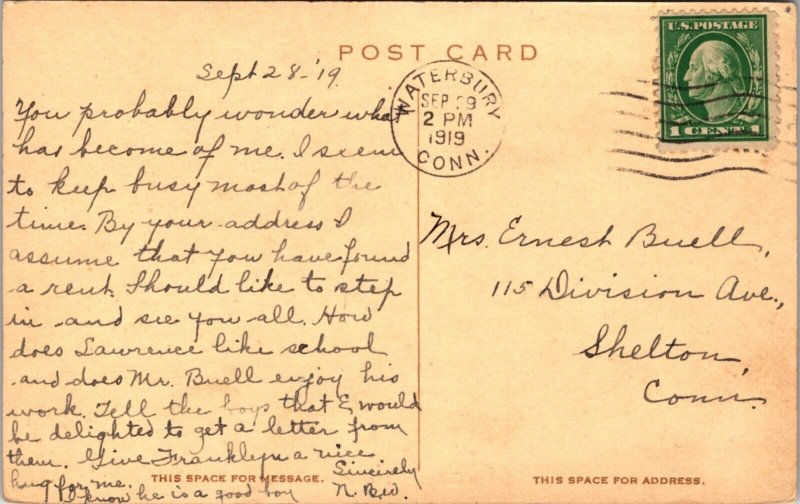 POST CARD
U.S. POSTAGE
1 CENT 1
WATERBURY
SEP 29
2 PM
1919
CONN.
Sept 28-'19
You probably wonder what
has become of me. I seem
to keep busy most of the
time. By your address I
assume that you have found
a rent. Should like to step
in and see you all. How
does Lawrence like school
and does Mr. Buell enjoy his
work. Tell the boys that I would
be delighted to get a letter from
them. Give Franklyn a nice
hug for me.
I know he is a good boy
Sincirely
THIS SPACE FOR MESSAGE.
Mrs. Ernest Buell,
115 Division Ave.,
Shelton,
Conn.
THIS SPACE FOR ADDRESS.